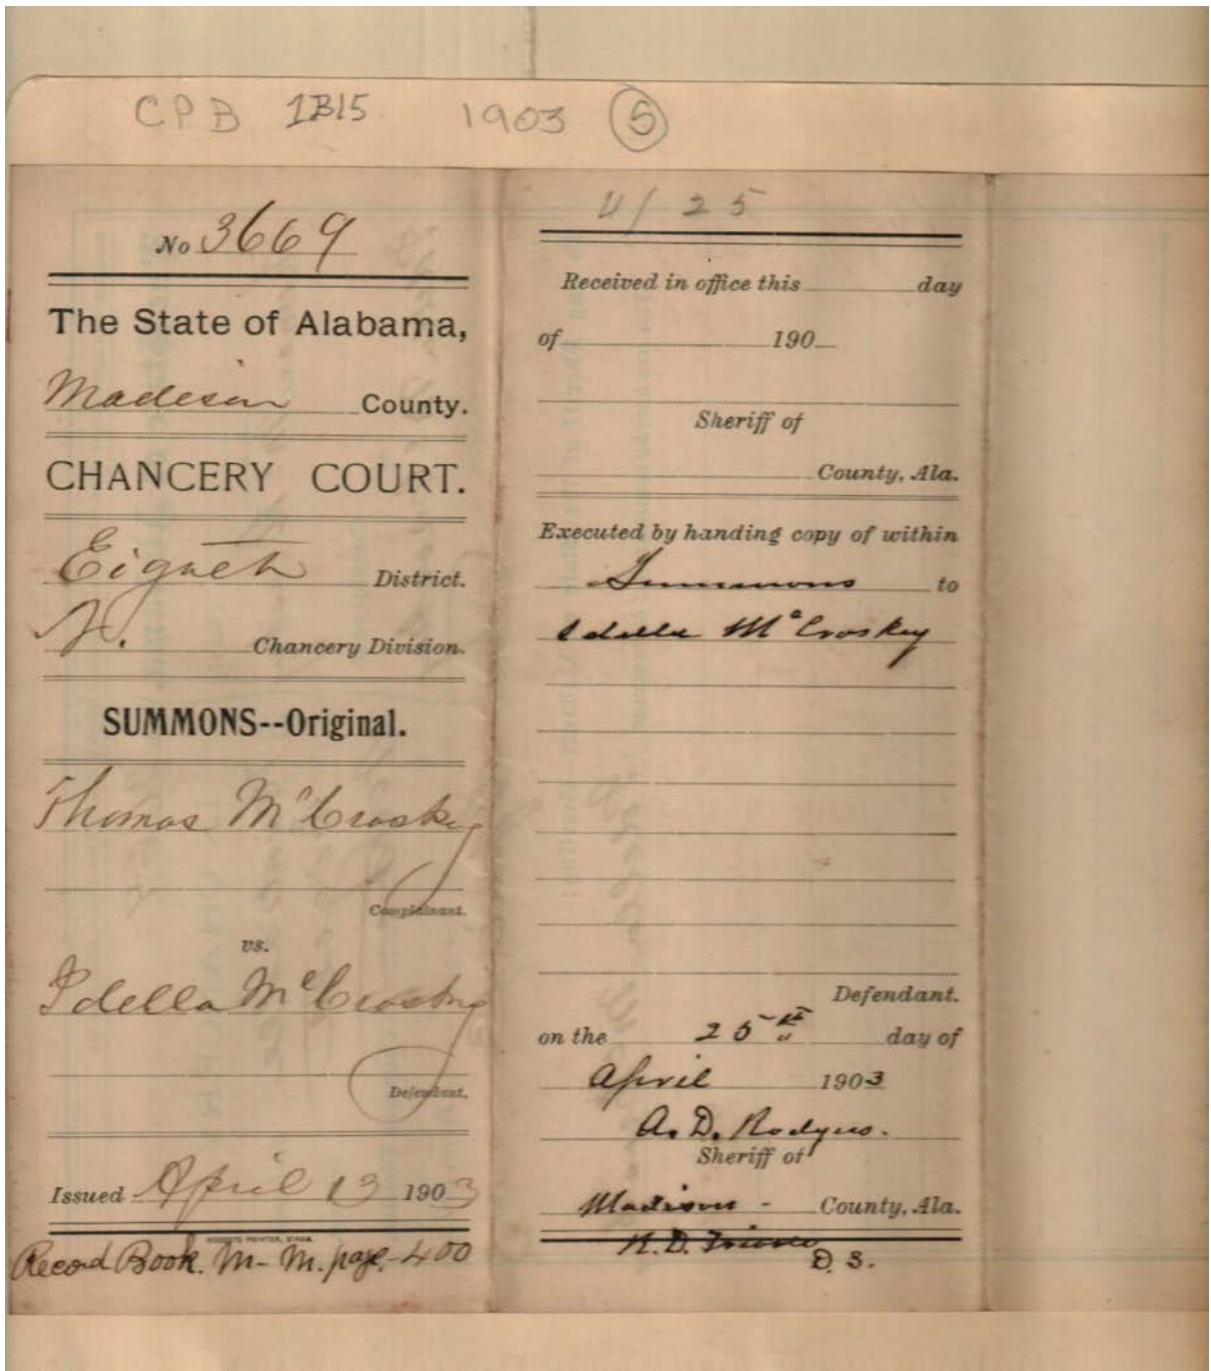 CPB 1B15 1903 5
No 3669
The State of Alabama,
Madison County.
CHANCERY COURT.
Eighth District.
N. Chancery Division.
SUMMONS--Original.
Thomas McCroskey
Complainant.
vs.
Idella McCroskey
Defendant.
Issued April 13 1903
Record Book. M-M. page-400
4/25
Received in office this day
of 190
Sheriff of
County, Ala.
Executed by handing copy of within
Summons to
Idella McCroskey
Defendant.
on the 25th day of
April 1903
A. D. Rodgers.
Sheriff of
Madison - County, Ala.
D. S.